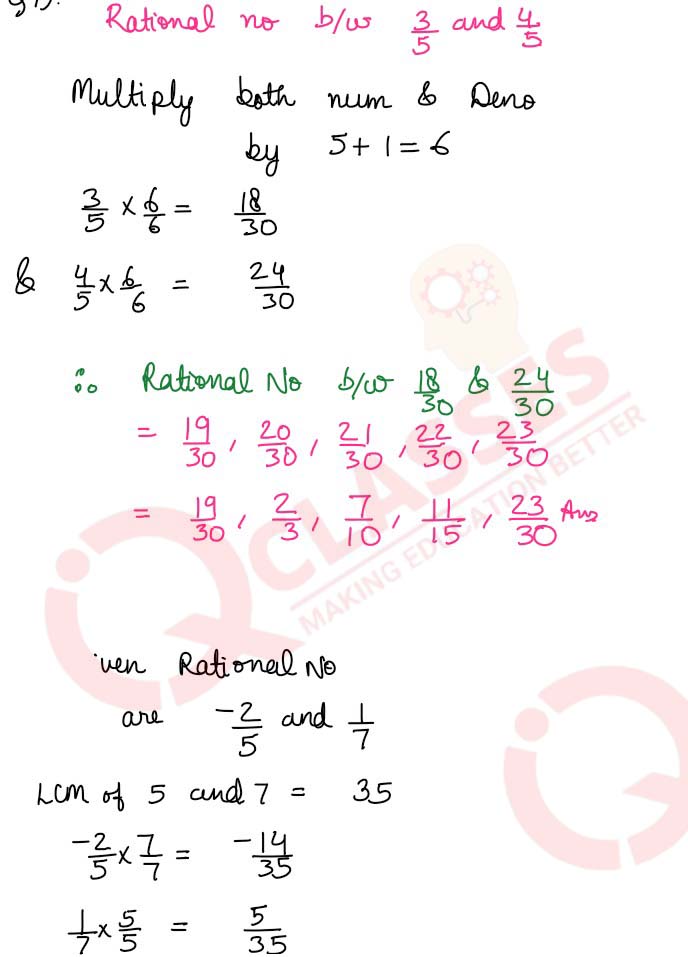 Rational no b/w 3/5 and 4/5
Multiply both num & Deno
by 5+1=6
3/5 × 6/6 = 18/30
& 4/5 × 6/6 = 24/30
∴ Rational No b/w 18/30 & 24/30
= 19/30, 20/30, 21/30, 22/30, 23/30
= 19/30, 2/3, 7/10, 11/15, 23/30 Ans
iQ CLASSES
MAKING EDUCATION BETTER
iven Rational No
are -2/5 and 1/7
LCM of 5 and 7 = 35
-2/5 × 7/7 = -14/35
1/7 × 5/5 = 5/35